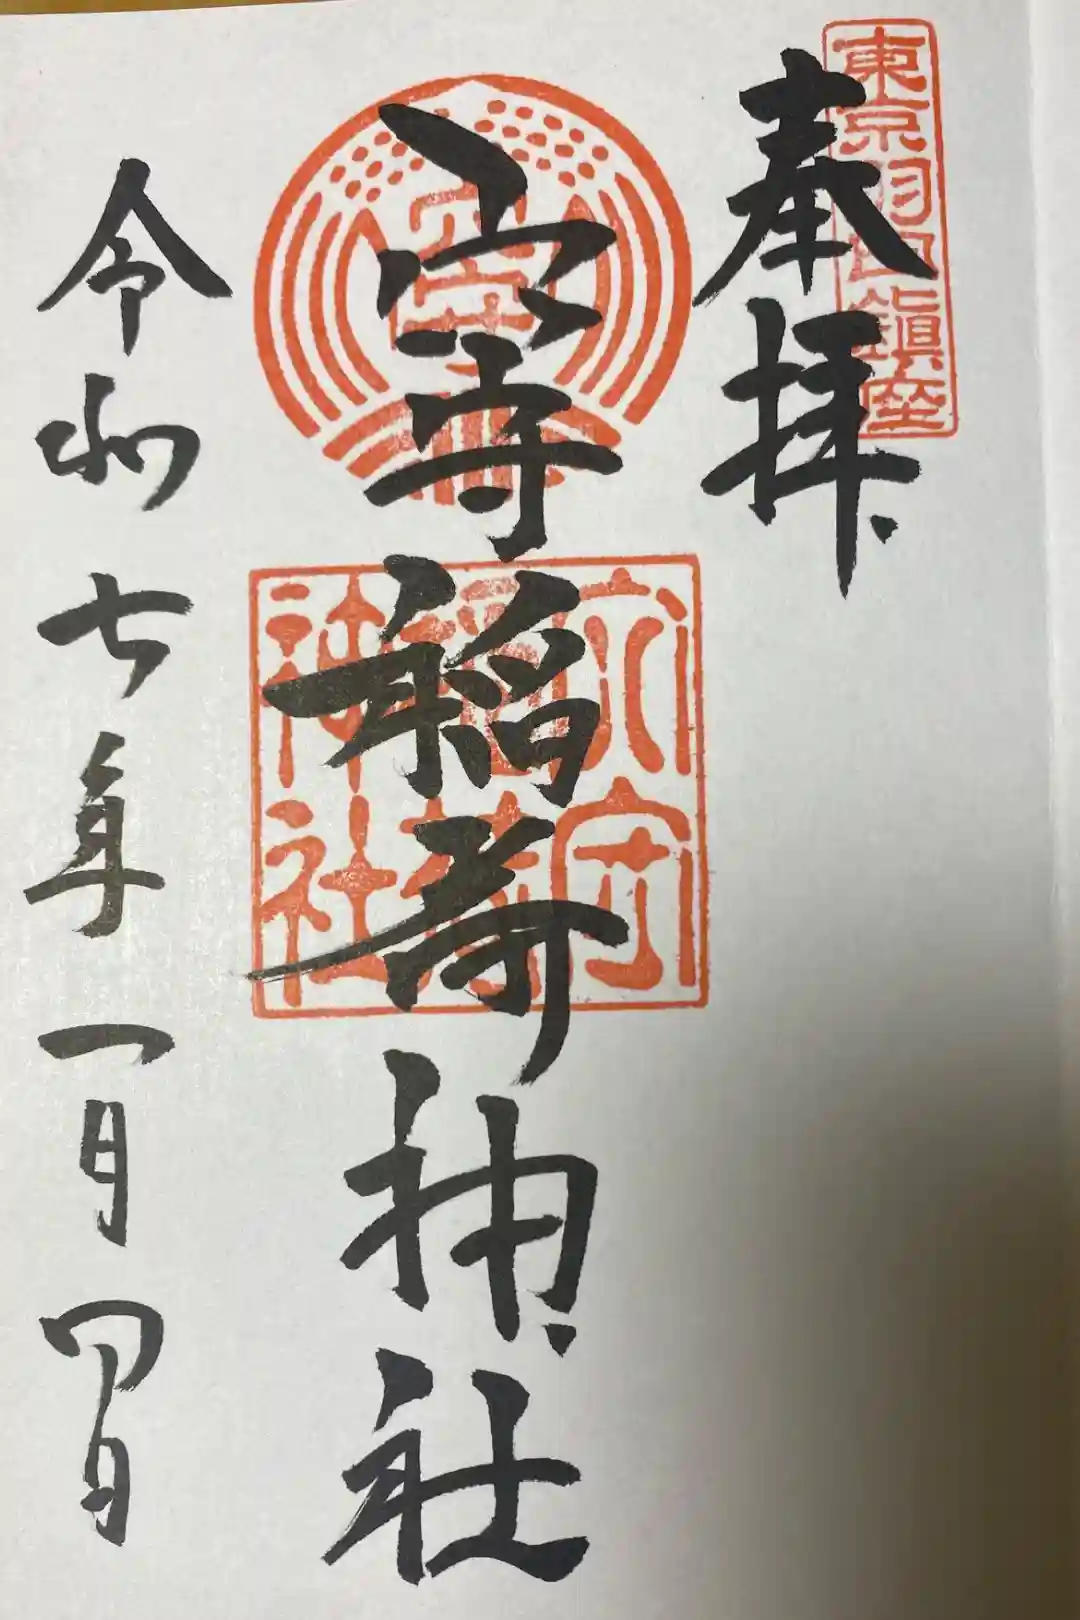 東京羽田鎮座
奉拝
穴守稲荷神社
穴守
稲荷
神社
令和七年一月四日